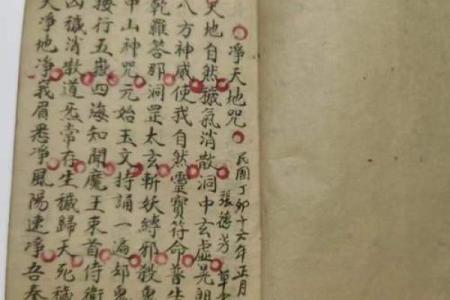 淨天地咒
民國丁卯十六年正月
張德芳
天地自然穢氣消散洞中玄虛晃朗
八方神威使我自然靈寶符命普告
乾羅答那洞罡太玄斬妖縛邪殺鬼
中山神咒元始玉文持誦一遍却鬼
按行五嶽四海知聞魔王束首侍衛
凶穢消散道炁常存生穢歸天死穢
天淨地淨我眉悉淨風陽速淨吾奉